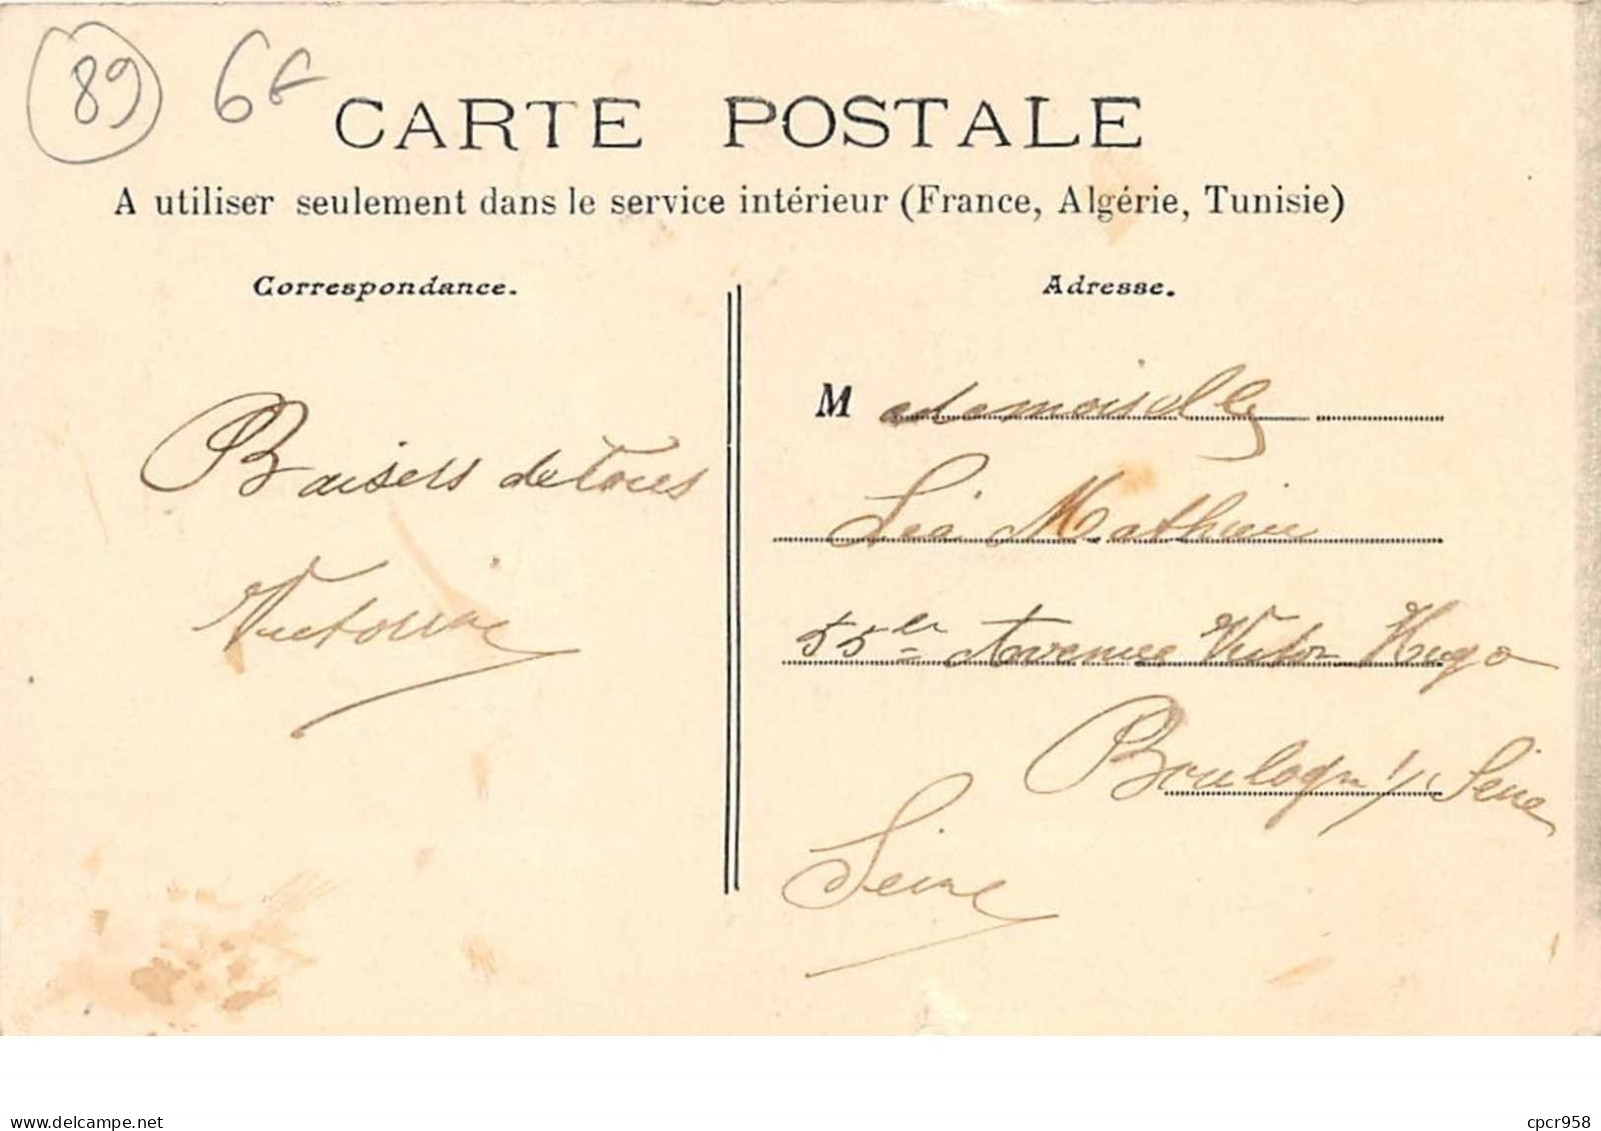 89 6€
CARTE POSTALE
A utiliser seulement dans le service intérieur (France, Algérie, Tunisie)
Correspondance.
Baisers de tous
Victorine
Adresse.
Mademoiselle
Léa Mathieu
55 Avenue Victor Hugo
Boulogne s/ Seine
Seine
delcampe.net
cpcr958